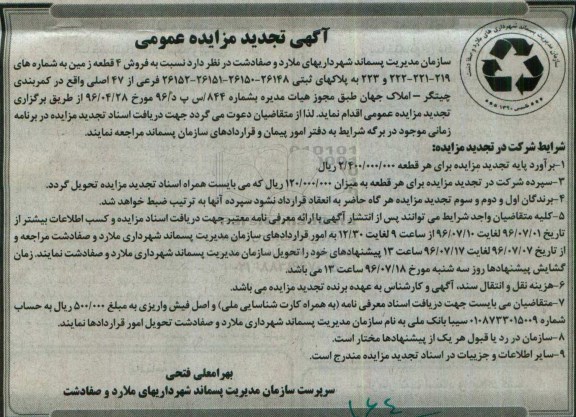 آگهی تجدید مزایده عمومی
سازمان مدیریت پسماند شهرداریهای ملارد و صفادشت در نظر دارد نسبت به فروش ۴ قطعه زمین به شماره های
۲۱۹-۲۲۱-۲۲۲ و ۲۲۳ به پلاکهای ثبتی ۲۶۱۴۸-۲۶۱۵۰-۲۶۱۵۱-۲۶۱۵۲ فرعی از ۴۷ اصلی واقع در کمربندی
چیتگر – املاک جهان طبق مجوز هیات مدیره بشماره ۸۴۴/س پ د/۹۶ مورخ ۹۶/۰۴/۲۸ از طریق برگزاری
تجدید مزایده عمومی اقدام نماید. لذا از متقاضیان دعوت می گردد جهت دریافت اسناد تجدید مزایده در برنامه
زمانی موجود در برگه شرایط به دفتر امور پیمان و قراردادهای سازمان پسماند مراجعه نمایند.
شرایط شرکت در تجدید مزایده:
۱-برآورد پایه تجدید مزایده برای هر قطعه ۲/۴۰۰/۰۰۰/۰۰۰ ریال
۳-سپرده شرکت در تجدید مزایده برای هر قطعه به میزان ۱۲۰/۰۰۰/۰۰۰ ریال که می بایست همراه اسناد تجدید مزایده تحویل گردد.
۴-برندگان اول و دوم و سوم تجدید مزایده هر گاه حاضر به انعقاد قرارداد نشود سپرده آنها به ترتیب ضبط خواهد شد.
۵-کلیه متقاضیان واجد شرایط می توانند پس از انتشار آگهی با ارائه معرفی نامه معتبر جهت دریافت اسناد مزایده و کسب اطلاعات بیشتر از
تاریخ ۹۶/۰۷/۰۱ لغایت ۹۶/۰۷/۱۰ از ساعت ۹ لغایت ۱۲/۳۰ به امور قراردادهای سازمان مدیریت پسماند شهرداری ملارد و صفادشت مراجعه و
از تاریخ ۹۶/۰۷/۰۷ لغایت ۹۶/۰۷/۱۷ ساعت ۱۳ پیشنهادهای خود را تحویل سازمان مدیریت پسماند شهرداری ملارد و صفادشت نمایند. زمان
گشایش پیشنهادها روز سه شنبه مورخ ۹۶/۰۷/۱۸ ساعت ۱۳ می باشد.
۶-هزینه نقل و انتقال سند، آگهی و کارشناس به عهده برنده تجدید مزایده می باشد.
۷-متقاضیان می بایست جهت دریافت اسناد معرفی نامه (به همراه کارت شناسایی ملی) و اصل فیش واریزی به مبلغ ۵۰۰/۰۰۰ ریال به حساب
شماره ۰۱۰۸۷۳۳۰۱۵۰۰۹ سیبا بانک ملی به نام سازمان مدیریت پسماند شهرداری ملارد و صفادشت تحویل امور قراردادها نمایند.
۸-سازمان در رد یا قبول هر یک از پیشنهادها مختار است.
۹-سایر اطلاعات و جزییات در اسناد تجدید مزایده مندرج است.
بهرامعلی فتحی
سرپرست سازمان مدیریت پسماند شهرداریهای ملارد و صفادشت
سازمان مدیریت پسماند شهرداری های ملارد و صفادشت